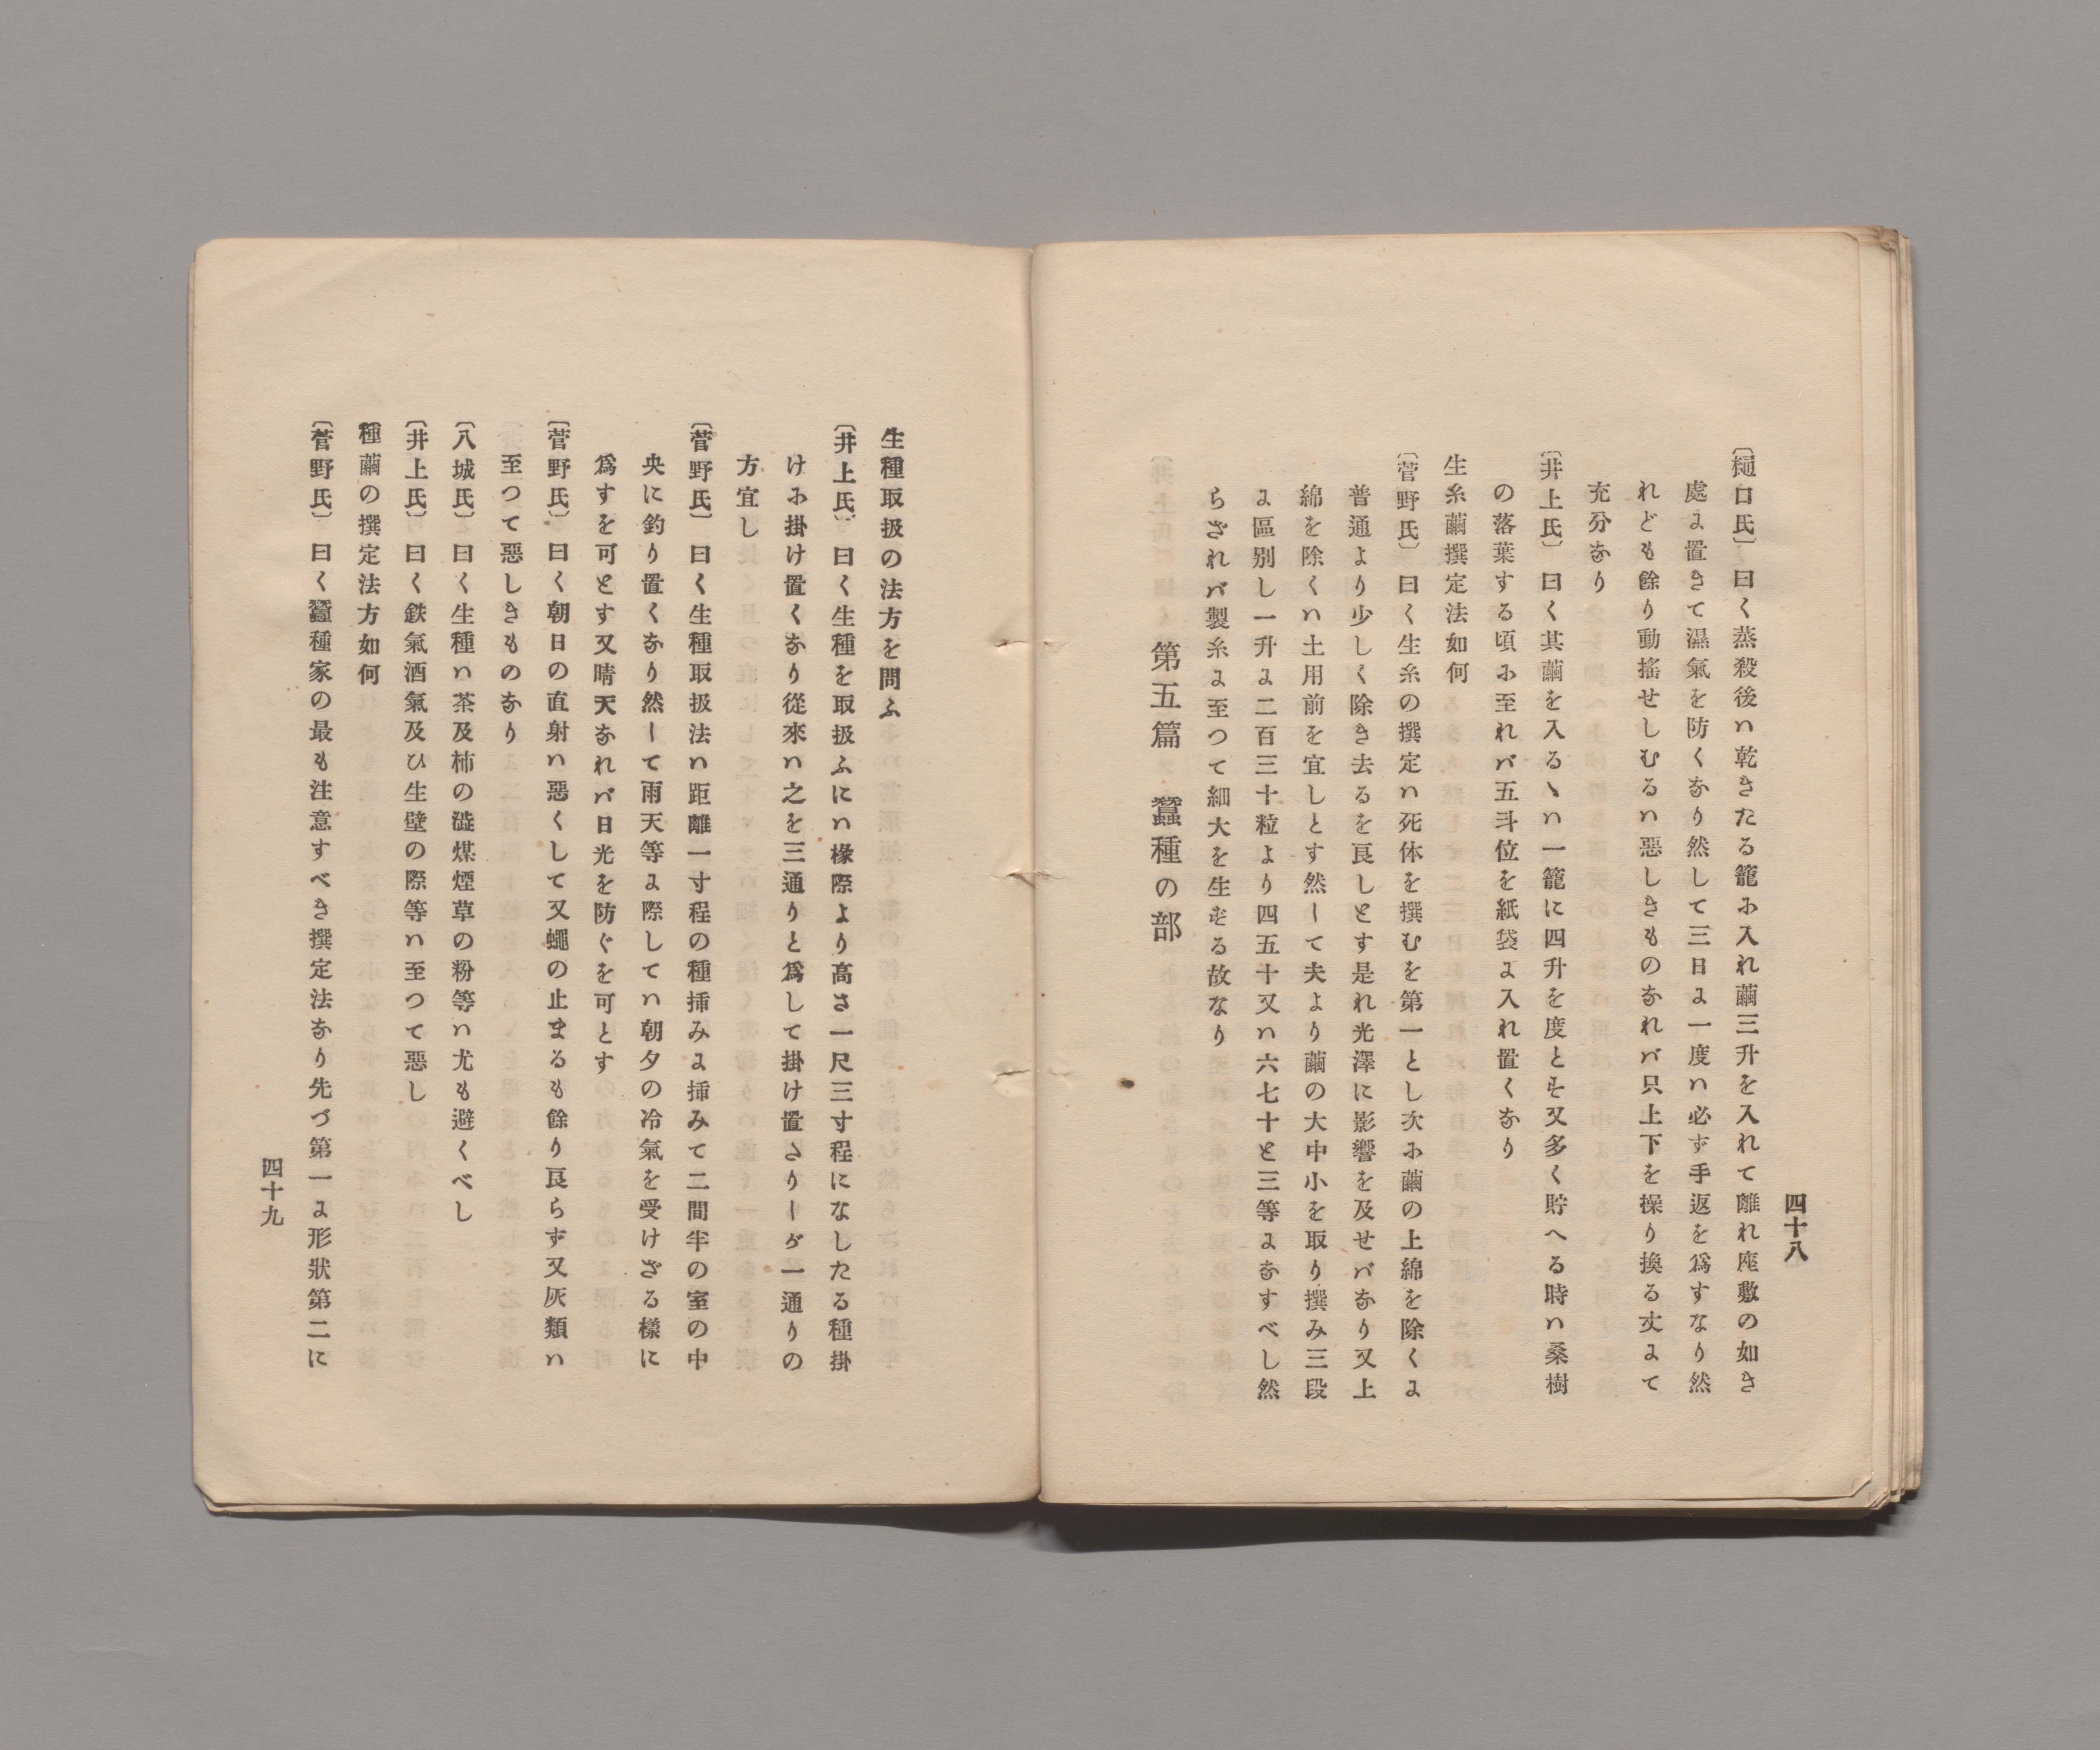 四十八
〔樋口氏〕曰く蒸殺後ハ乾きたる籠に入れ繭三升を入れて離れ座敷の如き
處に置きて濕氣を防くなり然して三日に一度ハ必ず手返を爲すなり然
れども餘り動搖せしむるハ惡しきものなれバ只上下を操り換る丈にて
充分なり
〔井上氏〕曰く其繭を入るゝハ一籠に四升を度とす又多く貯へる時ハ桑樹
の落葉する頃に至れバ五斗位を紙袋に入れ置くなり
生糸繭撰定法如何
〔菅野氏〕曰く生糸の撰定ハ死体を撰むを第一とし次に繭の上綿を除くに
普通より少しく除き去るを良しとす是れ光澤に影響を及せバなり又上
綿を除くハ土用前を宜しとす然して夫より繭の大中小を取り撰み三段
に區別し一升に二百三十粒より四五十又ハ六七十と三等になすべし然
らざれバ製糸に至つて細大を生ずる故なり
第五篇 蠶種の部
生種取扱の法方を問ふ
〔井上氏〕曰く生種を取扱ふにハ椽際より高さ一尺三寸程になしたる種掛
けに掛け置くなり從來ハ之を三通りと爲して掛け置さりしが一通りの
方宜し
〔菅野氏〕曰く生種取扱法ハ距離一寸程の種挿みに挿みて二間半の室の中
央に釣り置くなり然して雨天等に際してハ朝夕の冷氣を受けざる樣に
爲すを可とす又晴天なれバ日光を防ぐを可とす
〔菅野氏〕曰く朝日の直射ハ惡くして又蠅の止まるも餘り良らず又灰類ハ
至つて惡しきものなり
〔八城氏〕曰く生種ハ茶及柿の澁煤煙草の粉等ハ尤も避くべし
〔井上氏〕曰く鉄氣酒氣及ひ生壁の際等ハ至つて惡し
種繭の撰定法方如何
〔菅野氏〕曰く蠶種家の最も注意すべき撰定法なり先づ第一に形狀第二に
四十九